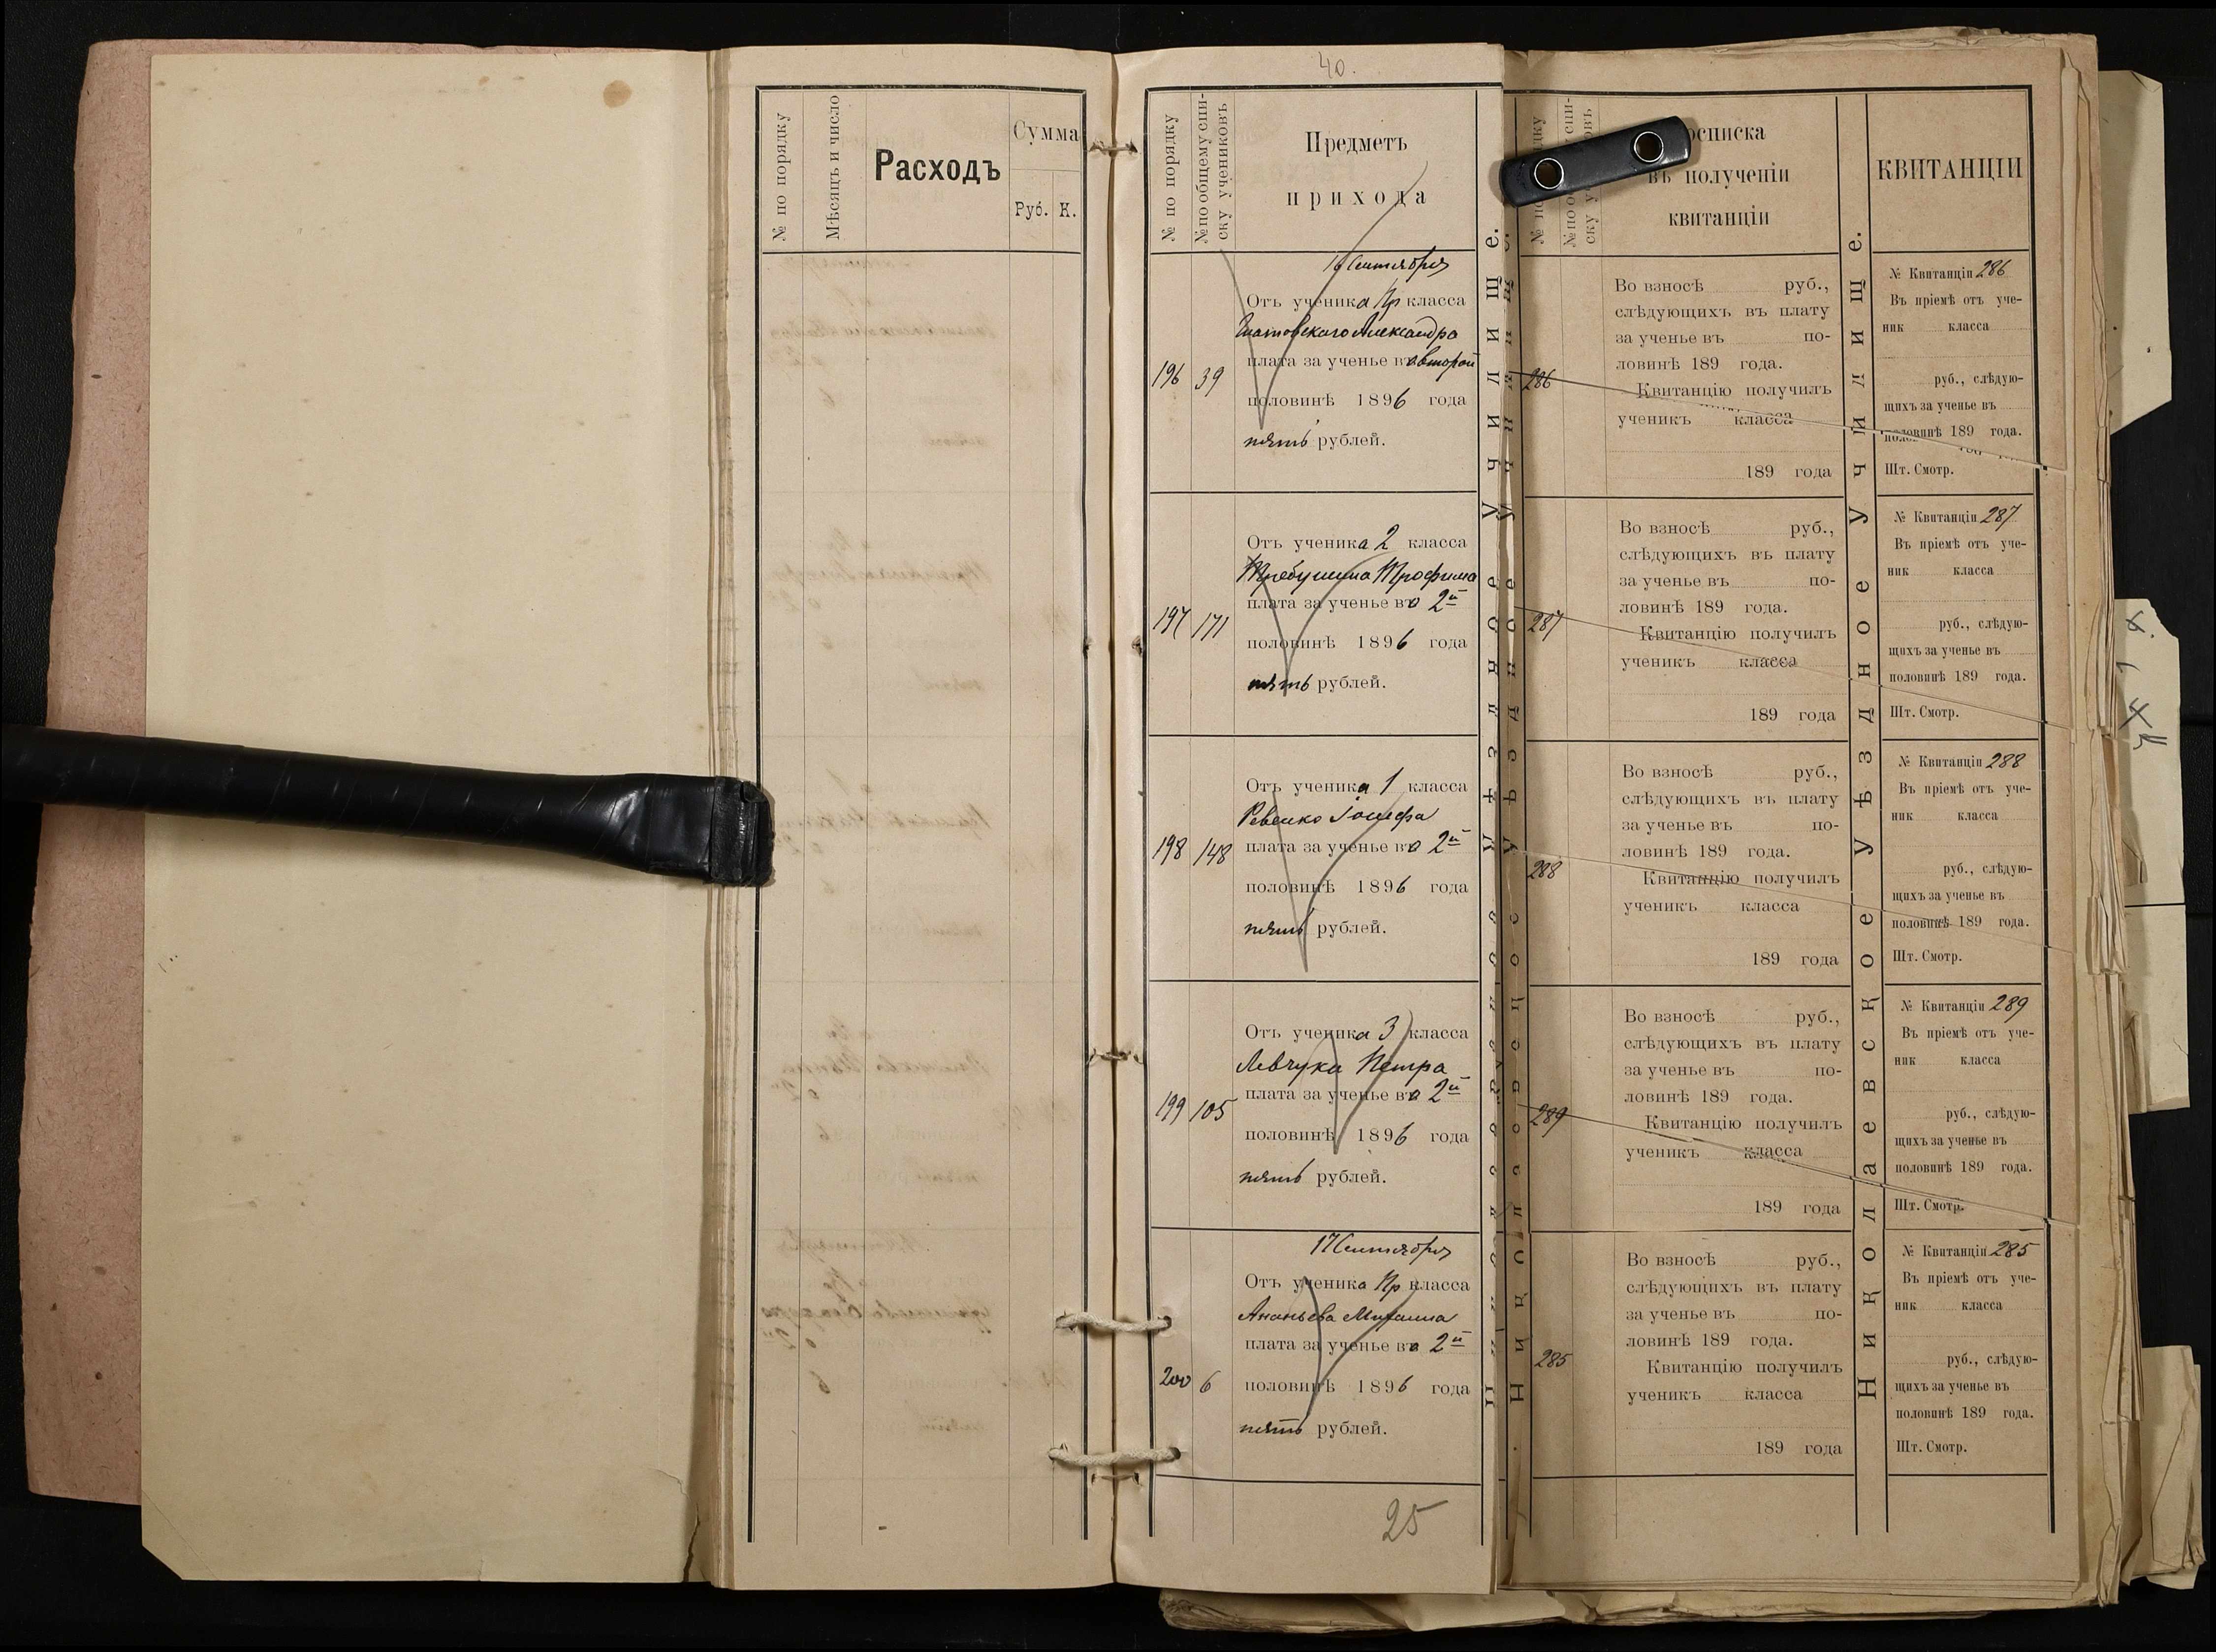 № по порядку
Мѣсяцъ и число
Расходъ
Сумма
Руб. К.
40.
№ по порядку
№ по общему спи-
ску учениковъ
Предметъ
прихода
16 Сентября
Отъ ученика Пр класса
Александра
плата за ученье во второй
196 39
половинѣ 1896 года
пять рублей.
Отъ ученика 2 класса
Трофима
плата за ученье во 2й
197 171
половинѣ 1896 года
пять рублей.
Отъ ученика 1 класса
Ревенко Іосифа
плата за ученье во 2й
198 148
половинѣ 1896 года
пять рублей.
Отъ ученика 3 класса
Левчука Петра
плата за ученье во 2й
199 105
половинѣ 1896 года
пять рублей.
17 Сентября
Отъ ученика Пр класса
Ананьева Михаила
плата за ученье во 2й
200 6
половинѣ 1896 года
пять рублей.
25
въ полученіи
квитанціи
Николаевское Уѣздное Училище.
КВИТАНЦІИ
286
Во взносѣ руб.,
слѣдующихъ въ плату
за ученье въ по-
ловинѣ 189 года.
Квитанцію получилъ
ученикъ класса
189 года
№ Квитанціи 286
Въ пріемѣ отъ уче-
ник класса
руб., слѣдую-
щихъ за ученье въ
половинѣ 189 года.
Шт. Смотр.
287
Во взносѣ руб.,
слѣдующихъ въ плату
за ученье въ по-
ловинѣ 189 года.
Квитанцію получилъ
ученикъ класса
189 года
№ Квитанціи 287
Въ пріемѣ отъ уче-
ник класса
руб., слѣдую-
щихъ за ученье въ
половинѣ 189 года.
Шт. Смотр.
288
Во взносѣ руб.,
слѣдующихъ въ плату
за ученье въ по-
ловинѣ 189 года.
Квитанцію получилъ
ученикъ класса
189 года
№ Квитанціи 288
Въ пріемѣ отъ уче-
ник класса
руб., слѣдую-
щихъ за ученье въ
половинѣ 189 года.
Шт. Смотр.
289
Во взносѣ руб.,
слѣдующихъ въ плату
за ученье въ по-
ловинѣ 189 года.
Квитанцію получилъ
ученикъ класса
189 года
№ Квитанціи 289
Въ пріемѣ отъ уче-
ник класса
руб., слѣдую-
щихъ за ученье въ
половинѣ 189 года.
Шт. Смотр.
285
Во взносѣ руб.,
слѣдующихъ въ плату
за ученье въ по-
ловинѣ 189 года.
Квитанцію получилъ
ученикъ класса
189 года
№ Квитанціи 285
Въ пріемѣ отъ уче-
ник класса
руб., слѣдую-
щихъ за ученье въ
половинѣ 189 года.
Шт. Смотр.